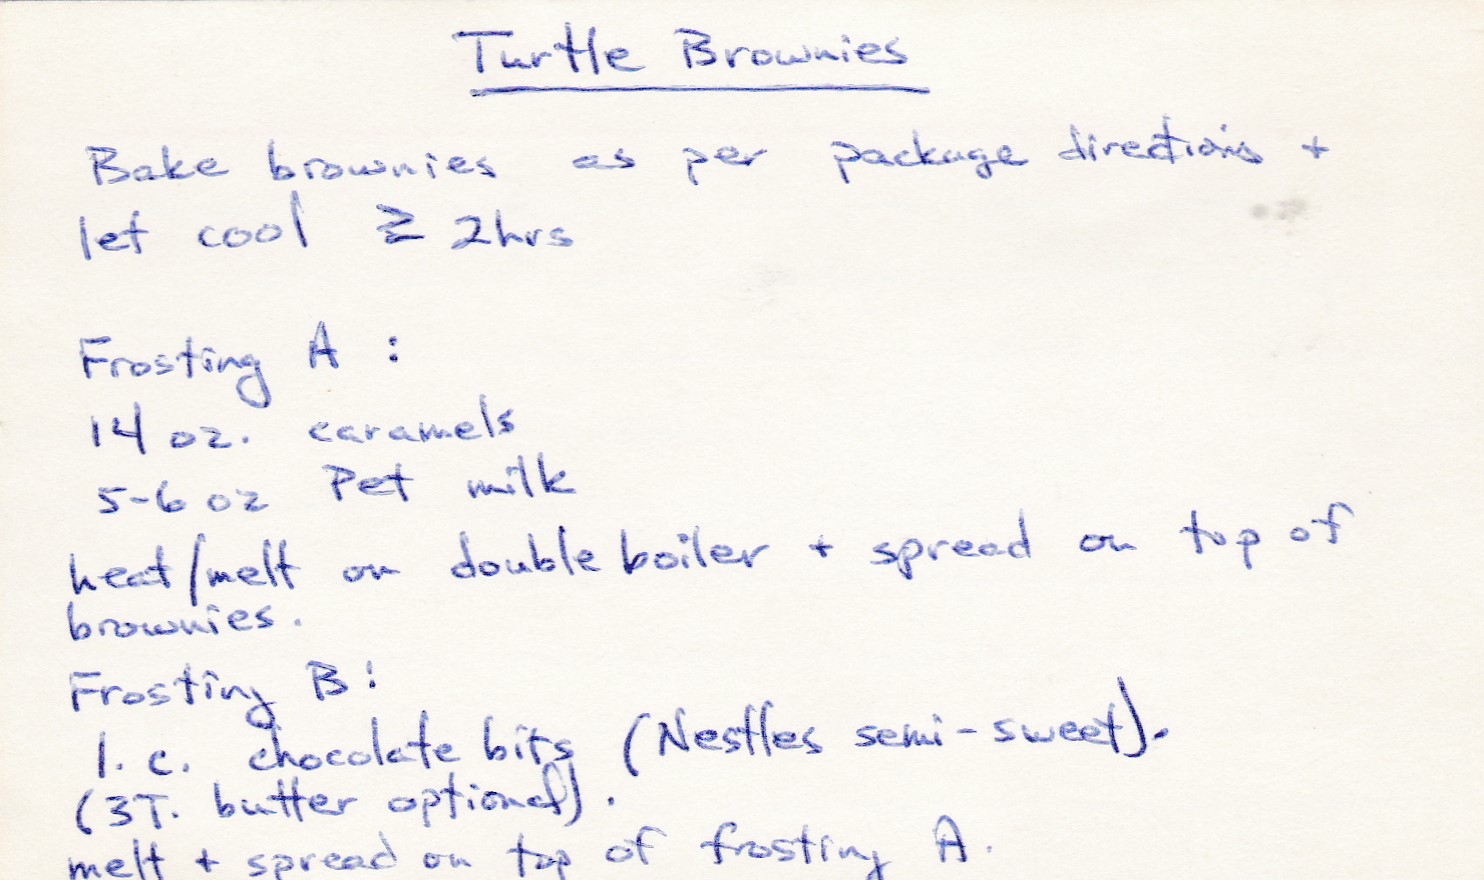 Turtle Brownies
Bake brownies as per package directions +
let cool ≥ 2hrs
Frosting A :
14 oz. caramels
5-6 oz Pet milk
heat/melt on double boiler + spread on top of
brownies.
Frosting B:
1. c. chocolate bits (Nestles semi-sweet).
(3T. butter optional).
melt + spread on top of frosting A.